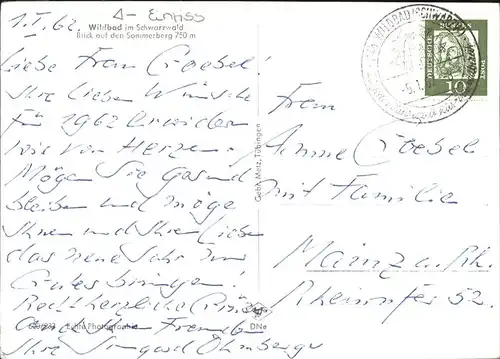 △- Enttss
1.I.62.
Wildbad im Schwarzwald
Blick auf den Sommerberg 750 m
Liebe Frau Goebel!
Ihre lieben Wünsche
für 1962 erwidern
wir von Herzen.
Mögen Sie gesund
bleiben und möge
Ihnen und Ihre Liebe
das neue Jahr nur
Gutes bringen!
Recht herzliche Grüße
auch Ihren Freunde
Ihre Irmgard
Echte Photographie
DNe
Gebr. Metz, Tübingen
WILDBAD (SCHWARZW
-5.1.
DEUTSCHE
BUNDES
POST
10
Frau
Anne Goebel
mit Familie
Mainz a. Rh.
Rheinufer 52.